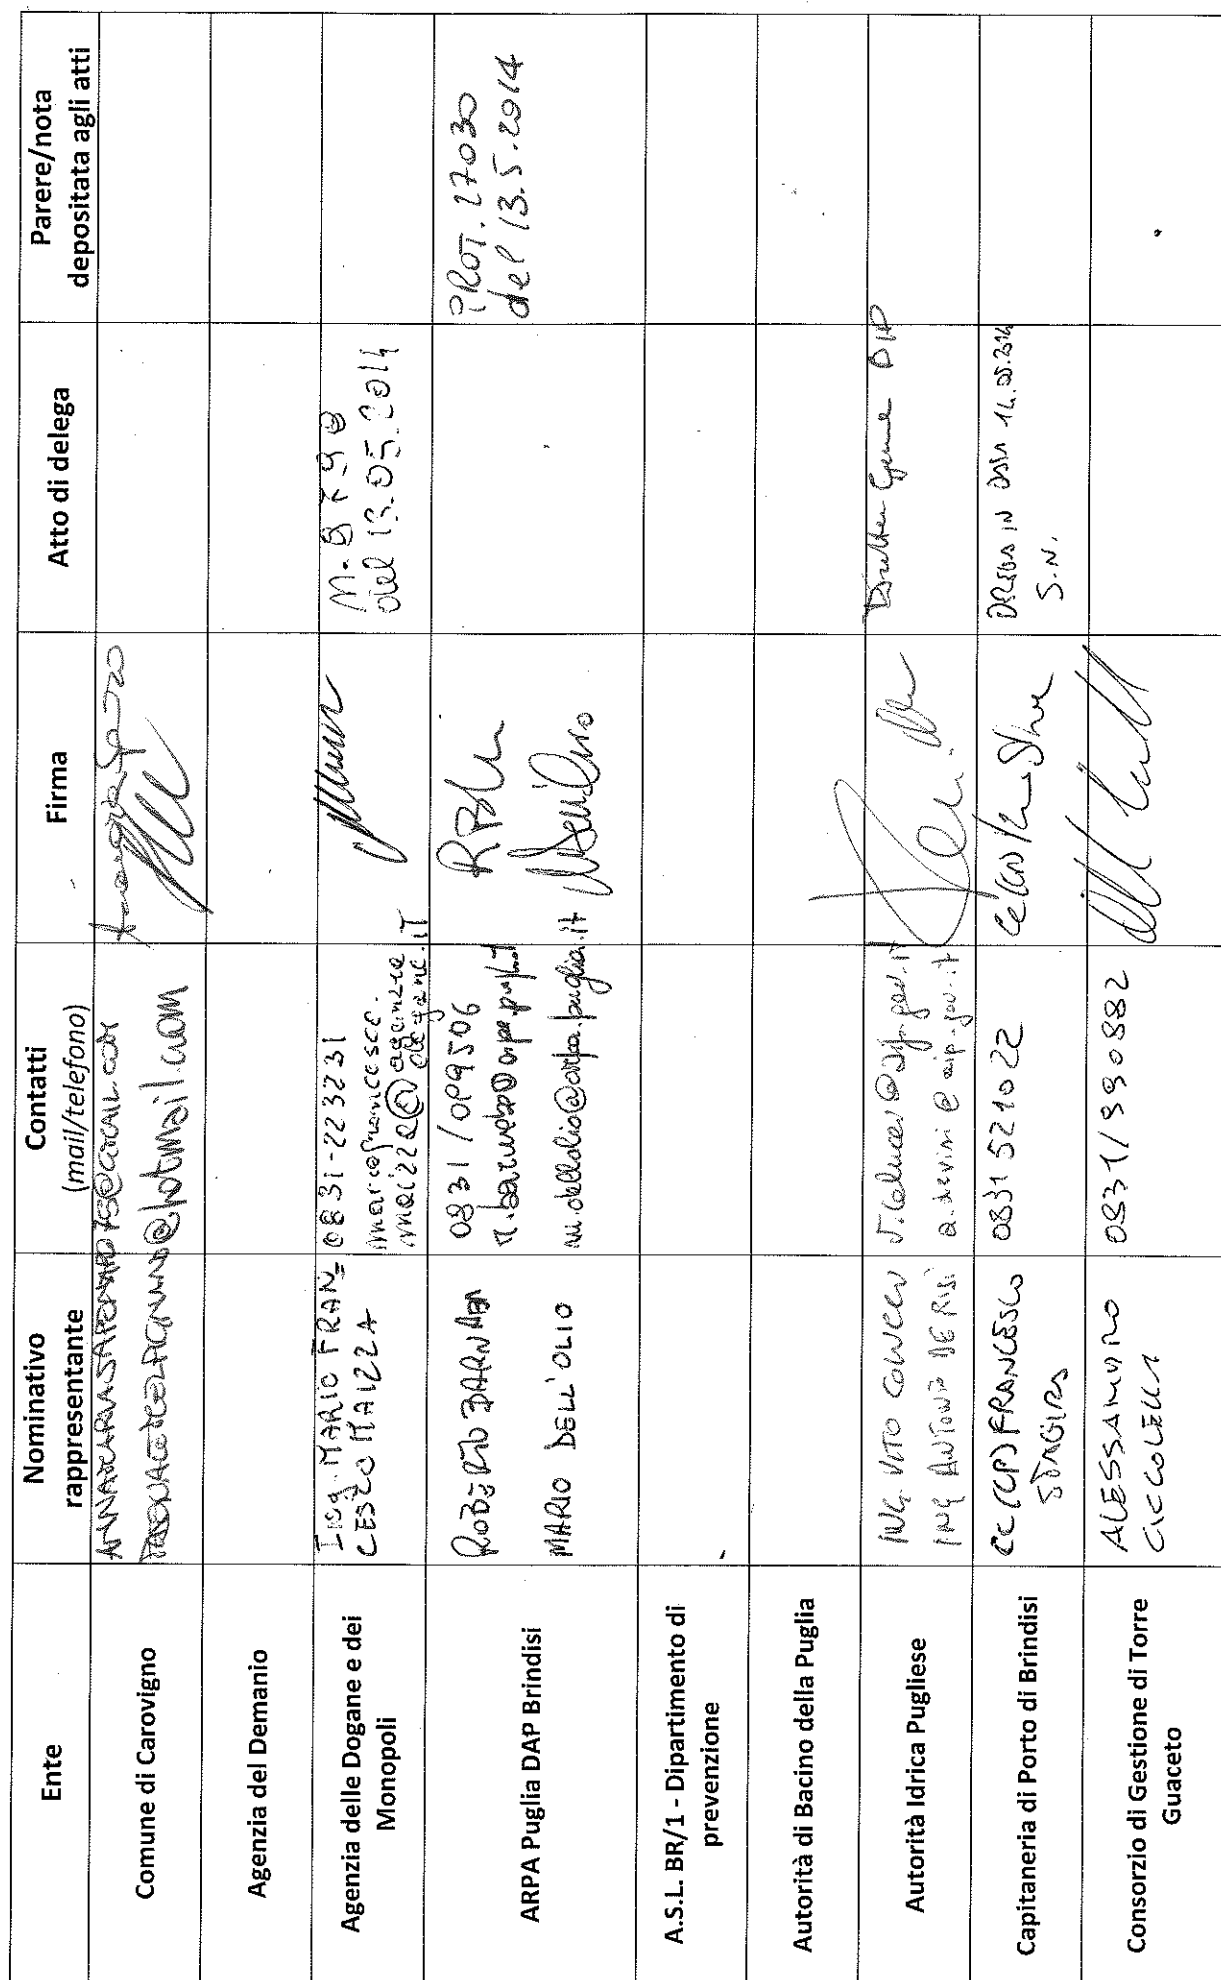 Ente
Nominativo
rappresentante
Contatti
(mail/telefono)
Firma
Atto di delega
Parere/nota
depositata agli atti
Comune di Carovigno
@hotmail.com
Agenzia del Demanio
Agenzia delle Dogane e dei
Monopoli
Ing. MARIO FRAN=
CESCO MAIZZA
0831-223231
mariofrancesco.
maizza@agenzia
dogane.iT
del 13.05.2014
ARPA Puglia DAP Brindisi
ROBERTO BARNABA
MARIO DELL'OLIO
0831/099506
m.dellolio@arpa.puglia.it
PROT. 27030
del 13.5.2014
A.S.L. BR/1 - Dipartimento di
prevenzione
Autorità di Bacino della Puglia
Autorità Idrica Pugliese
ING. VITO COLUCCI
ING ANTONIO DE RISI
Capitaneria di Porto di Brindisi
FRANCESCO
0831 521022
DELEGA IN DATA 14.05.2014
S.N.
Consorzio di Gestione di Torre
Guaceto
ALESSANDRO
CICCOLELLA
0831/990882